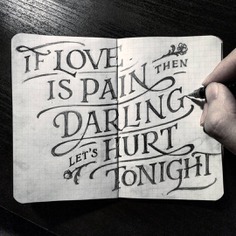 IF LOVE
IS PAIN THEN
DARLING
LET'S HURT
TONIGHT